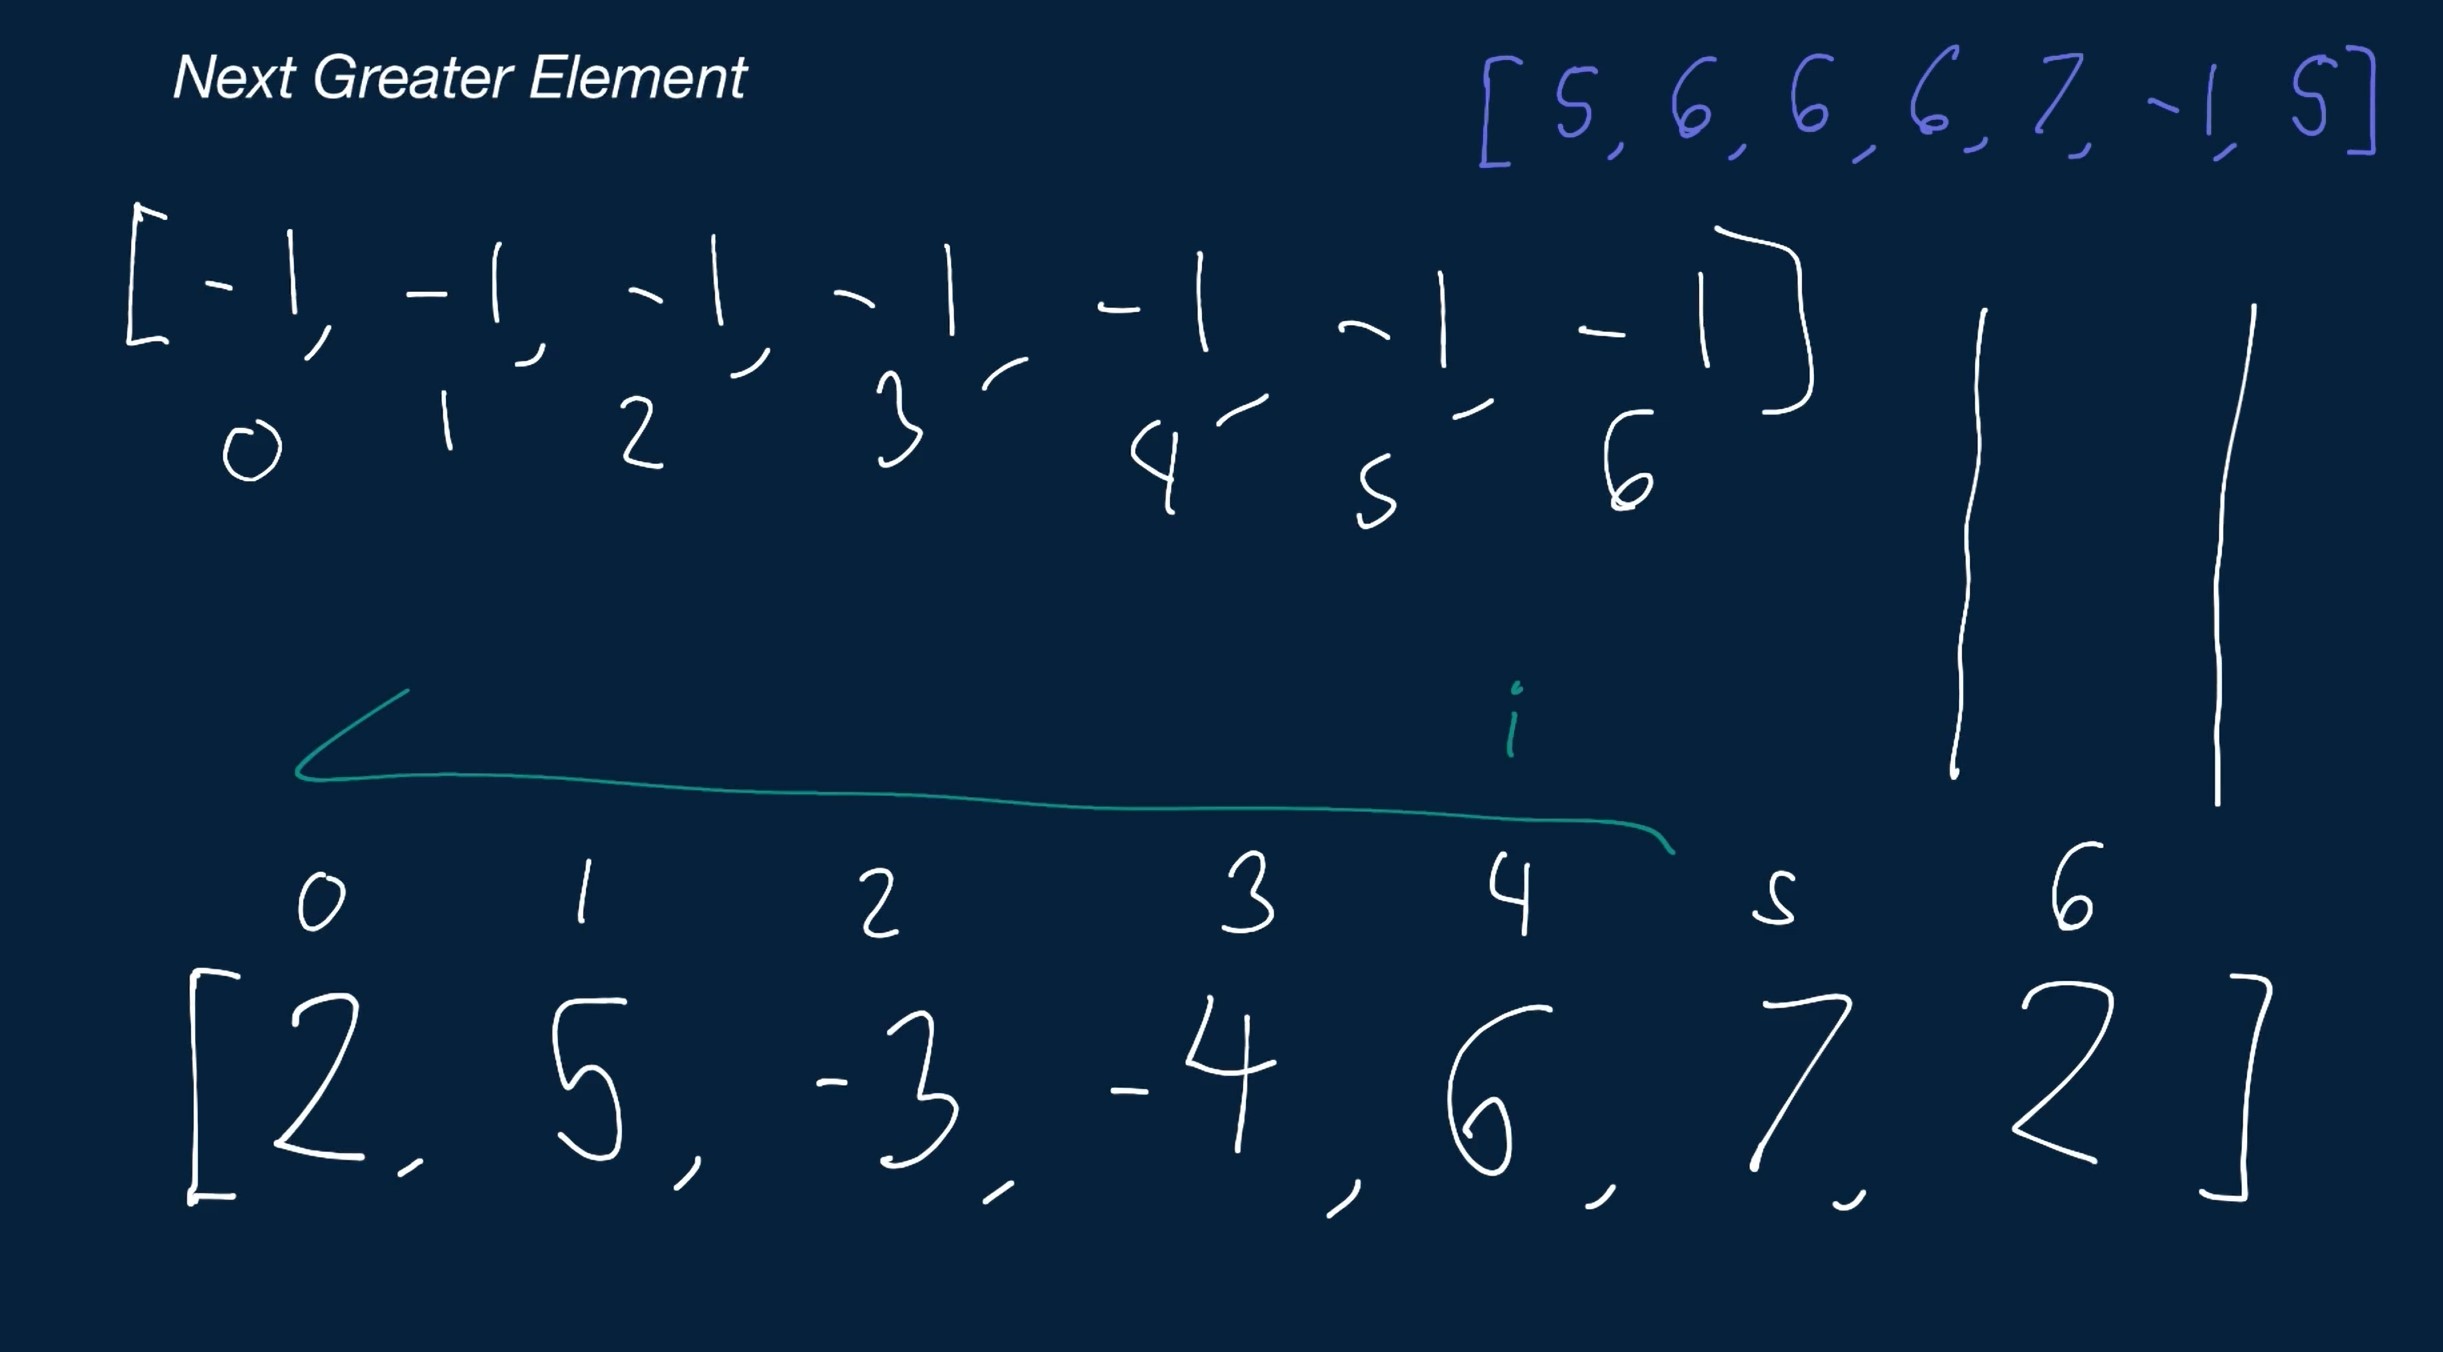 Next Greater Element
[5, 6, 6, 6, 7, -1, 5]
[-1, -1, -1, -1, -1, -1, -1]
0 1 2 3 4 5 6
i
0 1 2 3 4 5 6
[2, 5, -3, -4, 6, 7, 2]